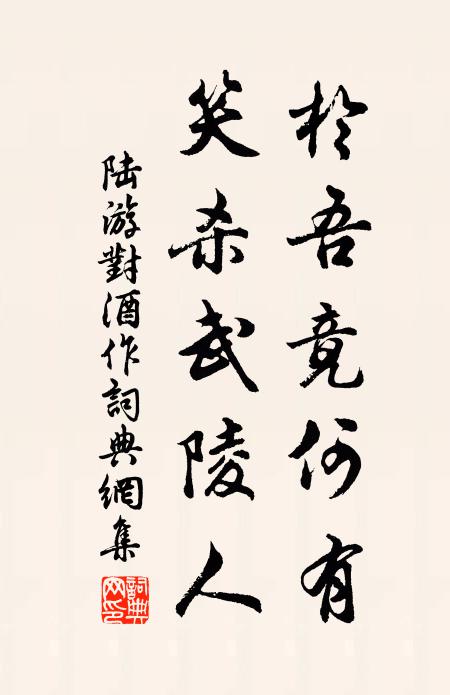 於吾竟何有
笑杀武陵人
陆游對酒作詞典網集
詞典网印